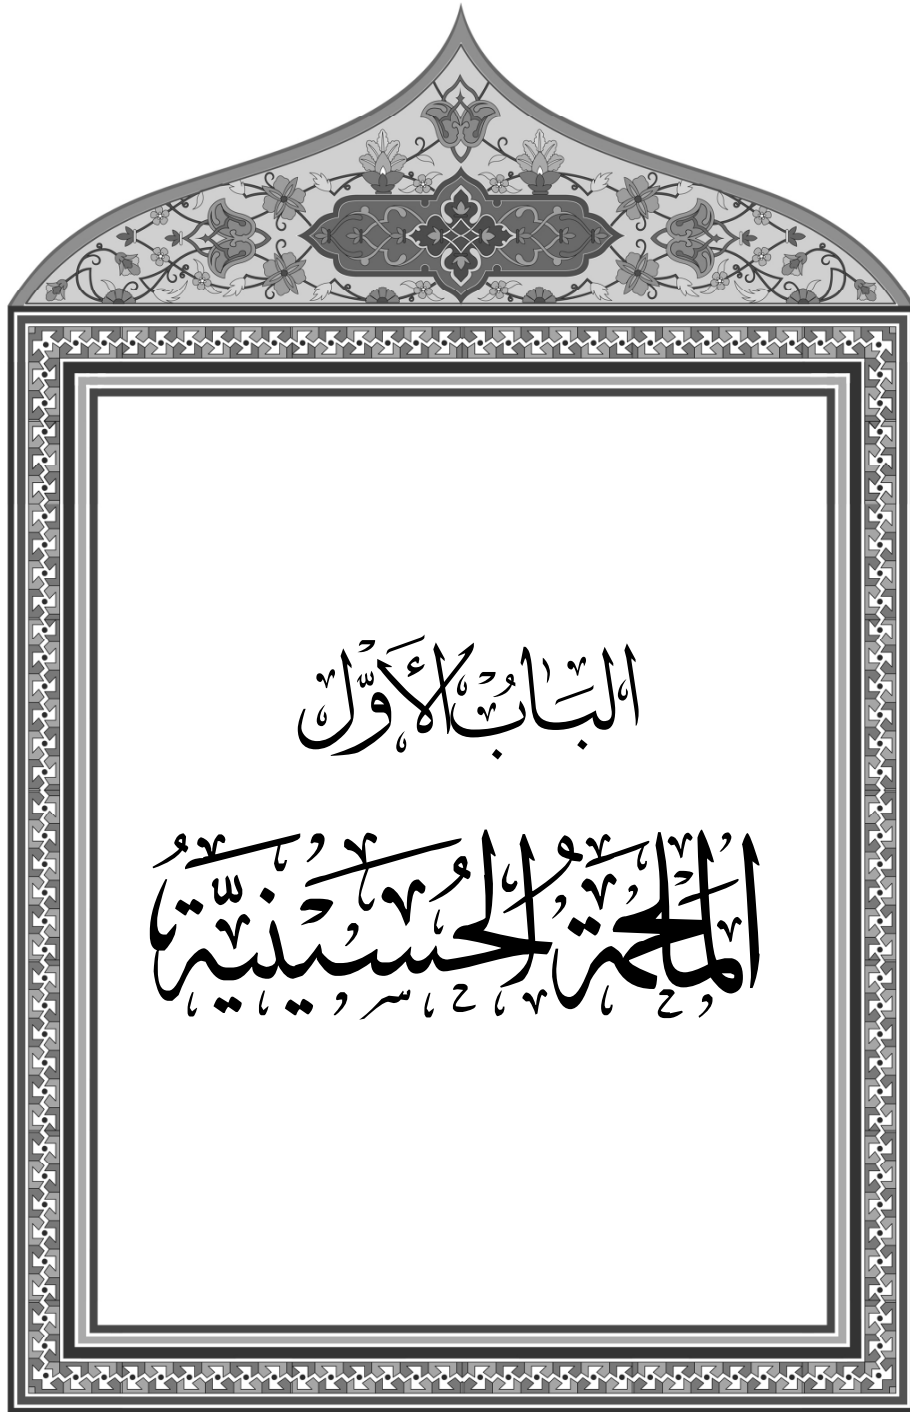 البَابُ الأَوَّل
المَلحَمَةُ الحُسَينيَّةُ